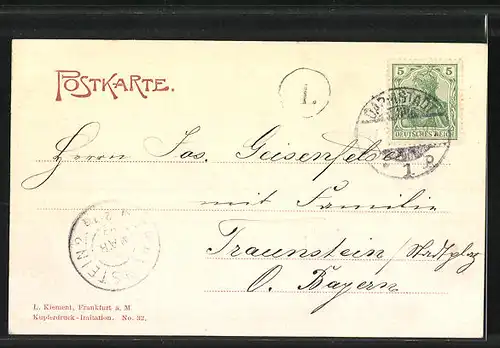 POSTKARTE.
1.
5 5
DEUTSCHES REICH
DARMSTADT
1.
Herrn Jos. Geisenfelder
mit Familie
Traunstein/Stadtplatz
O. Bayern
TRAUNSTEIN 2
MAR
L. Kismont, Frankfurt a. M
Kupferdruck-Imitation. No. 32.